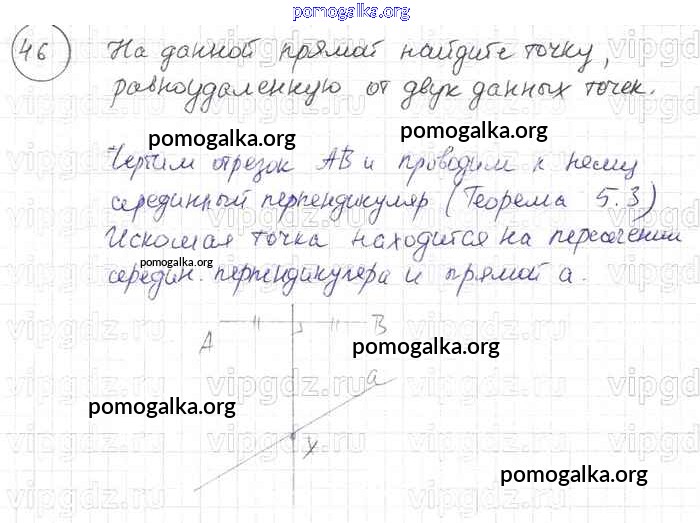 pomogalka.org
46 На данной прямой найдите точку,
равноудаленную от двух данных точек.
pomogalka.org
pomogalka.org
Чертим отрезок AB и проводим к нему
серединный перпендикуляр (Теорема 5.3)
Искомая точка находится на пересечении
pomogalka.org
середин. перпендикуляра и прямой a.
A
B
pomogalka.org
a
pomogalka.org
X
pomogalka.org
vipgdz.ru